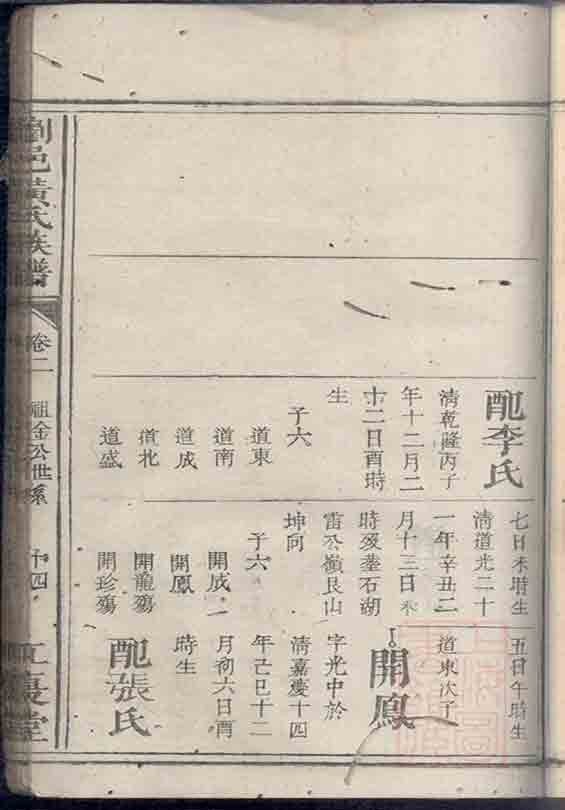 配李氏
清乾隆丙子
年十二月二
十二日酉時
生
子六
道東
道南
道成
道北
道盛
七日未時生
清道光二十
一年辛丑二
月十三日未
時歿葬石湖
雷公嶺艮山
坤向
子六
開成
開鳳
開龍殤
開珍殤
五日午時生
開鳳
道東次子
字光中於
清嘉慶十四
年己巳十二
月初六日酉
時生
配張氏
劉邑黃氏族譜
卷二
祖金公世系
十四